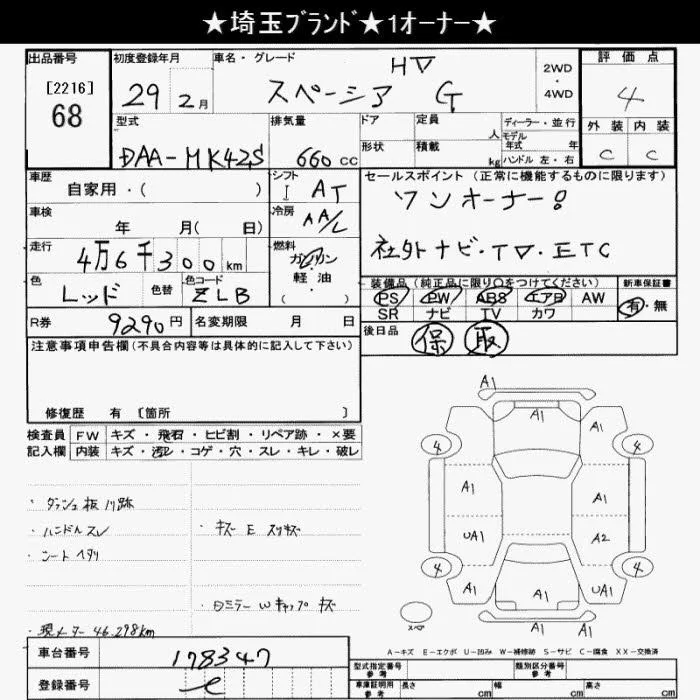 ★埼玉ブランド★1オーナー★
出品番号 初度登録年月 車名・グレード 評価点
[2216]
68
29年2月
HV
スペーシア G
2WD
・
4WD
4
型式 排気量 ドア 定員 人 ディーラー・並行 外装 内装
DAA-MK42S 660cc
形状 積載 kg
モデル年式 年
ハンドル 左・右
C C
車歴 シフト セールスポイント(正常に機能するものに限ります)
自家用・( )
I AT
ワンオーナー!
車検 冷房
年 月( 日)
AA/L
走行 燃料
4万6千300km
ガソリン
軽・油
( )
社外ナビ・TV・ETC
色 色替 色コード
レッド ZLB
装備品(純正品に限り○をつけてください) 新車保証書
PS PW ABS エアB AW
SR ナビ TV カワ
有・無
R券 9290円 名変期限 月 日
後日品 保 取
注意事項申告欄(不具合内容等は具体的に記入して下さい)
修復歴 有 [箇所 ]
検査員 FW キズ・飛石・ヒビ割・リペア跡・×要
記入欄 内装 キズ・汚レ・コゲ・穴・スレ・キレ・破レ
・ダッシュ板ノリ跡
・ハンドルスレ
・シートヘタリ
・キズ E スリキズ
・ミラーWキャップキズ
・現メーター 46,298km
A1
A1 A1 A1
4 4
A1 A1
UA1 A2
4 4
A1 A1 UA1
A1
スペア
A-キズ E-エクボ U-凹み W-補修跡 S-サビ C-腐食 XX-交換済
車台番号 178347
登録番号 e
型式指定番号 参考 類別区分番号 参考
車庫証明用 参考 長さ cm 幅 cm 高さ cm